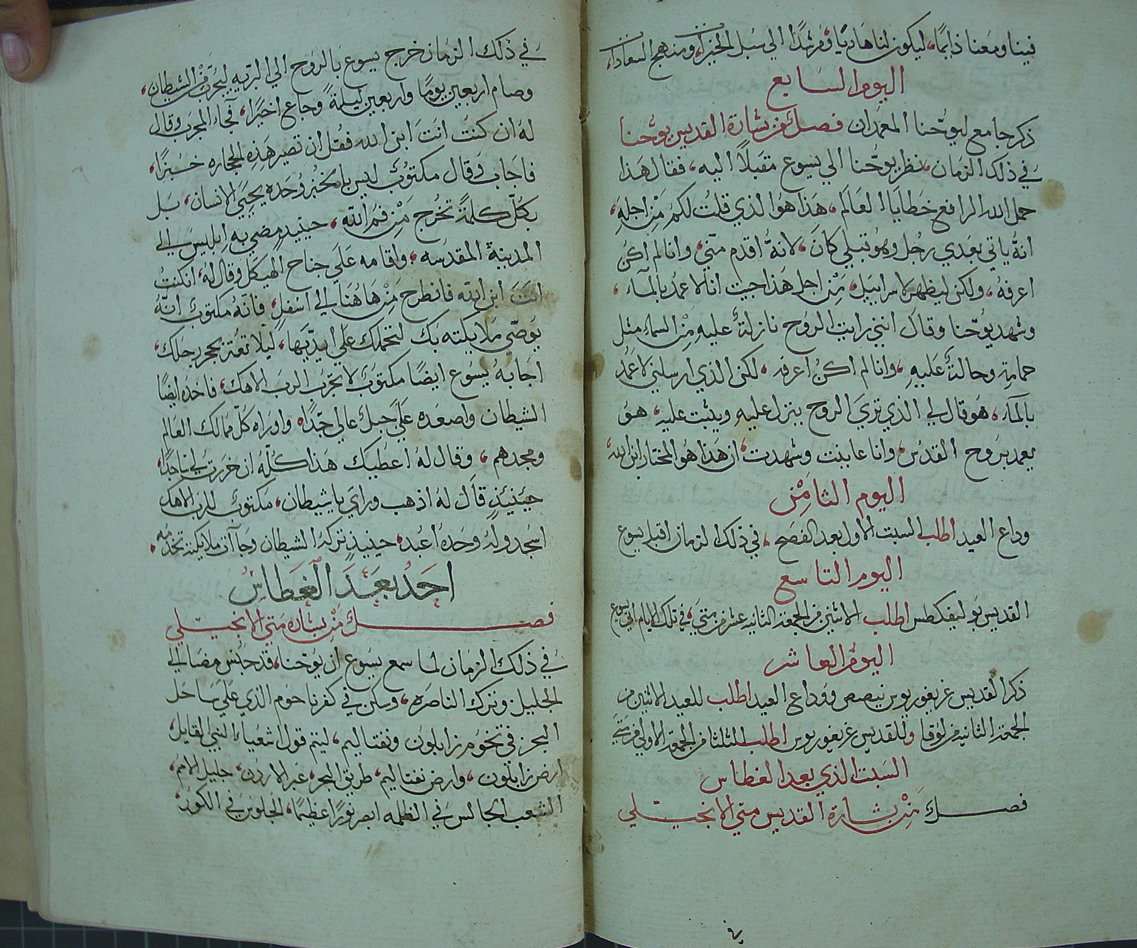 فينا ومعنا دايمًا، ليكون لنا هاديًا ومرشدًا الي سبل الخيرات، ومنهج السعادات،
اليوم السابع
ذكر جامع ليوحنا المعمدان فصل من بشارة القديس يوحنا
في ذلك الزمان، نظر يوحنا الي يسوع مقبلًا اليه، فقال هذا
حمل الله الرافع خطايا العالم، هذا هو الذي قلت لكم من اجله،
انه ياتي بعدي رجل وهو قبلي كان، لانه اقدم مني، وانا لم اكن
اعرفه، ولكن ليظهر لاسراييل، من اجل هذا جيت انا لاعمد بالمآء،
وشهد يوحنا وقال انني رايت الروح نازلة عليه من السماء مثل
حمامة وحالة عليه، وانا لم اكن اعرفه، لكن الذي ارسلني لاعمد
بالمآء، هو قال لي الذي تري الروح ينزل عليه ويثبت عليه، هو
يعمد بروح القدس، وانا عاينت وشهدت، ان هذا هو المختار ابن الله،
اليوم الثامن
وداع العيد اطلب السبت الاول بعد الفصح، في ذلك الزمان اقبل يسوع
اليوم التاسع
القديس بوليفكطس اطلب الاثنين من الجمعة الثانية عشر من متي، في تلك الايام اتي يسوع
اليوم العاشر
ذكر القديس غريغوريوس نيصص ووداع العيد اطلب للعيد الاثنين من
الجمعة الثانية من لوقا وللقديس غريغوريوس اطلب الثلثا من الجمعة الاولي من متي
السبت الذي بعد الغطاس
فصل من بشارة القديس متي الانجيلي
في ذلك الزمان خرج يسوع بالروح الي البرية ليجرب من الشيطان،
وصام اربعين يومًا واربعين ليلة، وجاع اخيرًا، فجاء المجرب وقال
له ان كنت انت ابن الله فقل ان تصير هذه الحجاره خبزًا،
فاجاب وقال مكتوب ليس بالخبز وحده يحيي الانسان، بل
بكل كلمة تخرج من فم الله، حينيذ مضي به ابليس الي
المدينة المقدسه، واقامه علي جناح الهيكل وقال له، ان كنت
انت ابن الله فانطرح من هاهنا الي اسفل، فانه مكتوب انه
يوصي ملايكته بك لتحملك علي ايديها، ليلا تعثر بحجر رجلك،
اجابه يسوع ايضًا مكتوب لا تجرب الرب الاهك، فاخذه ايضًا
الشيطان واصعده علي جبل عالي جدًا، واوراه كل ممالك العالم
ومجدهم، وقال له اعطيك هذا كله ان خررت لي ساجدًا،
حينيذ قال له اذهب وراي يا شيطان، مكتوب للرب الاهك
اسجد وله وحده اعبد، حينيذ تركه الشيطان وجاآت ملايكة تخدمه،
احد بعد الغطاس
فصل من بشارة متي الانجيلي
في ذلك الزمان لما سمع يسوع ان يوحنا، قد حبس مضا الي
الجليل وترك الناصره، وسكن في كفرناحوم الذي علي ساحل
البحر في تخوم زابلون ونفتاليم، ليتم قول اشعياء النبي القايل،
ارض زابلون، وارض نفتاليم، طريق البحر، عبر الاردن، جليل الامم،
الشعب الجالس في الظلمه ابصر نورًا عظيمًا، الجلوس في الكورة